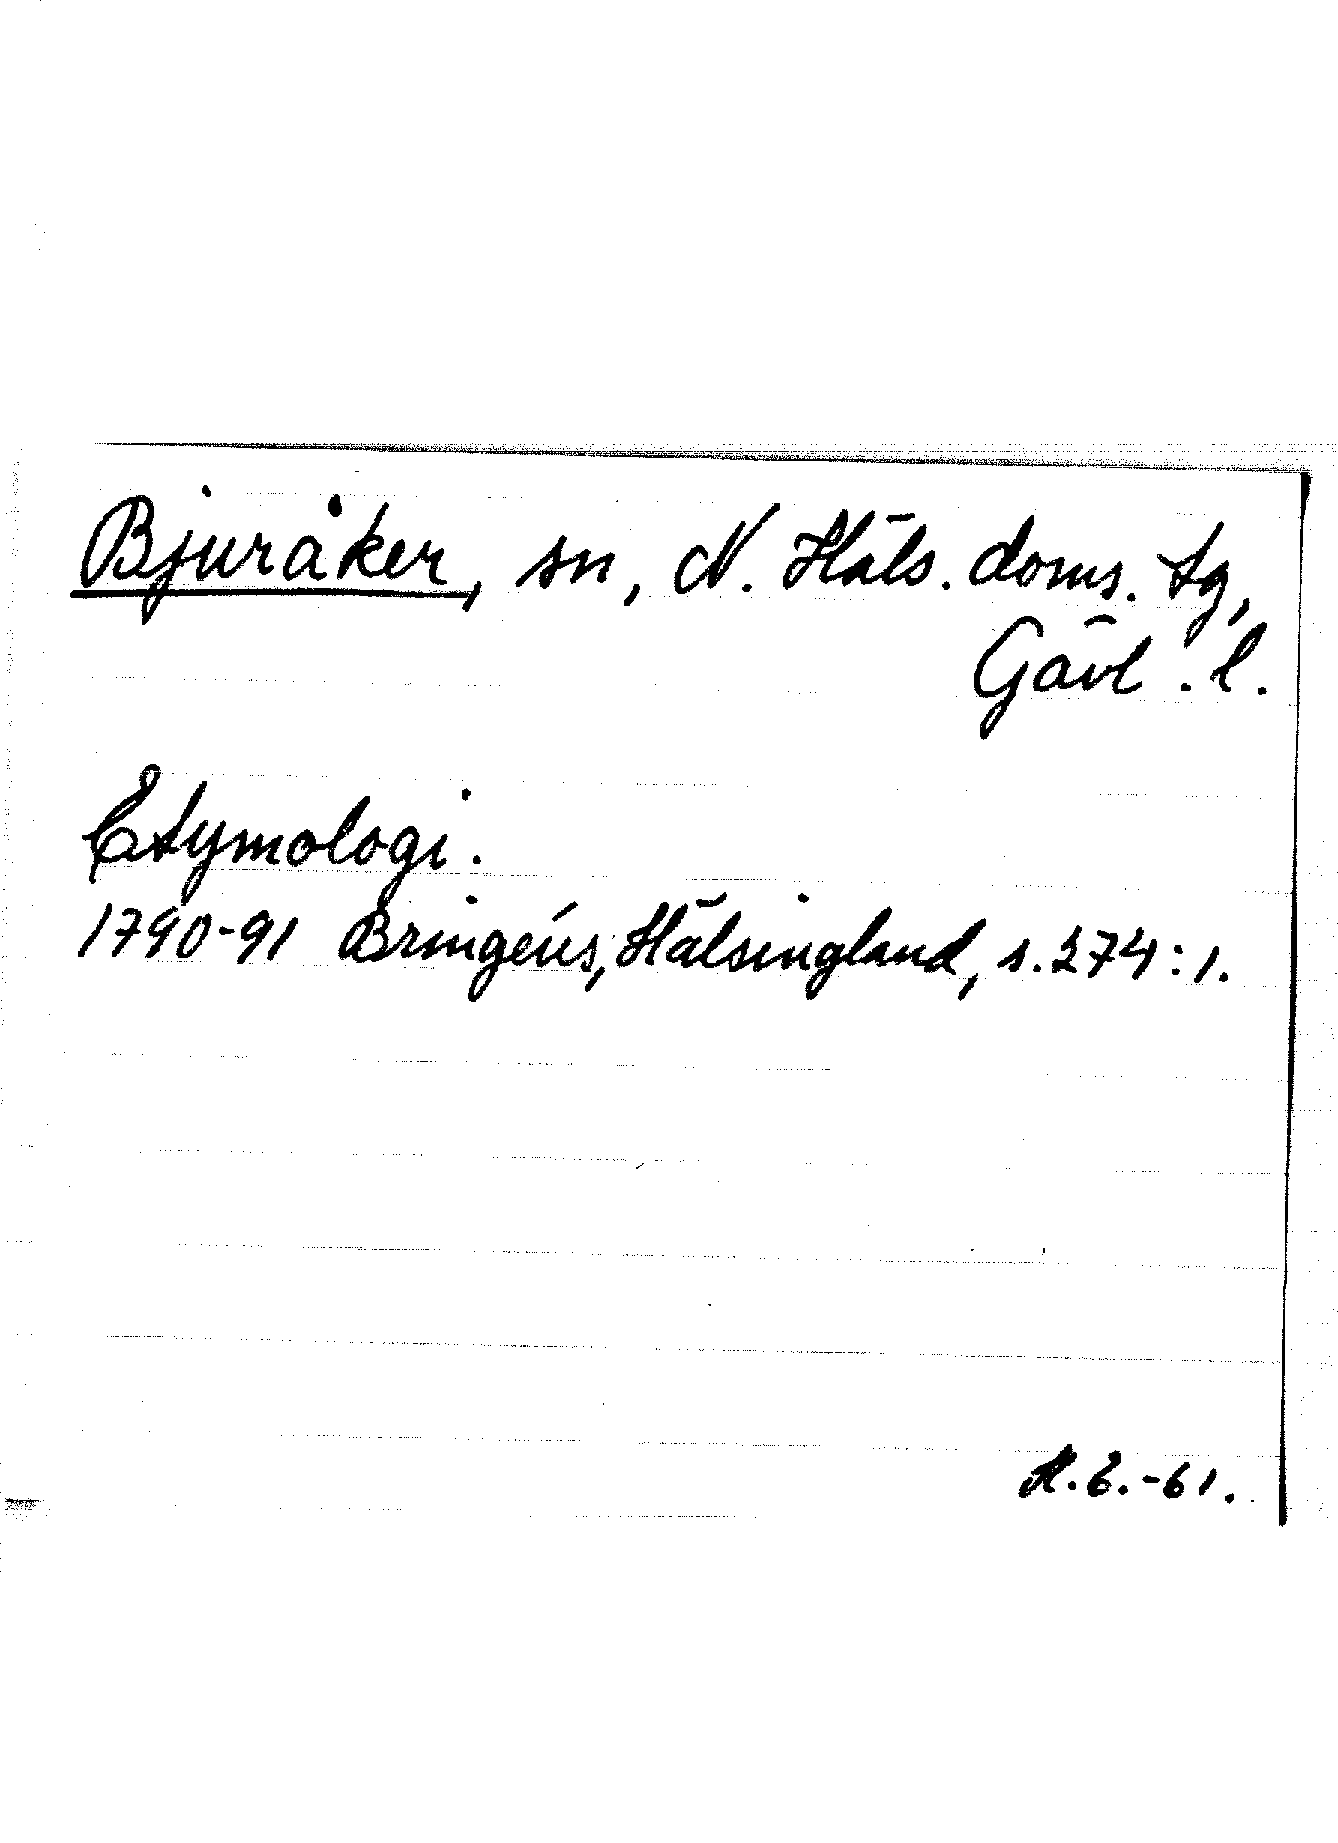 Bjuråker, sn, N. Häls. doms. sg,
Gävl. l.
Etymologi.
1790-91 Bringéus, Hälsingland, s. 274:1.
H.E.-61.